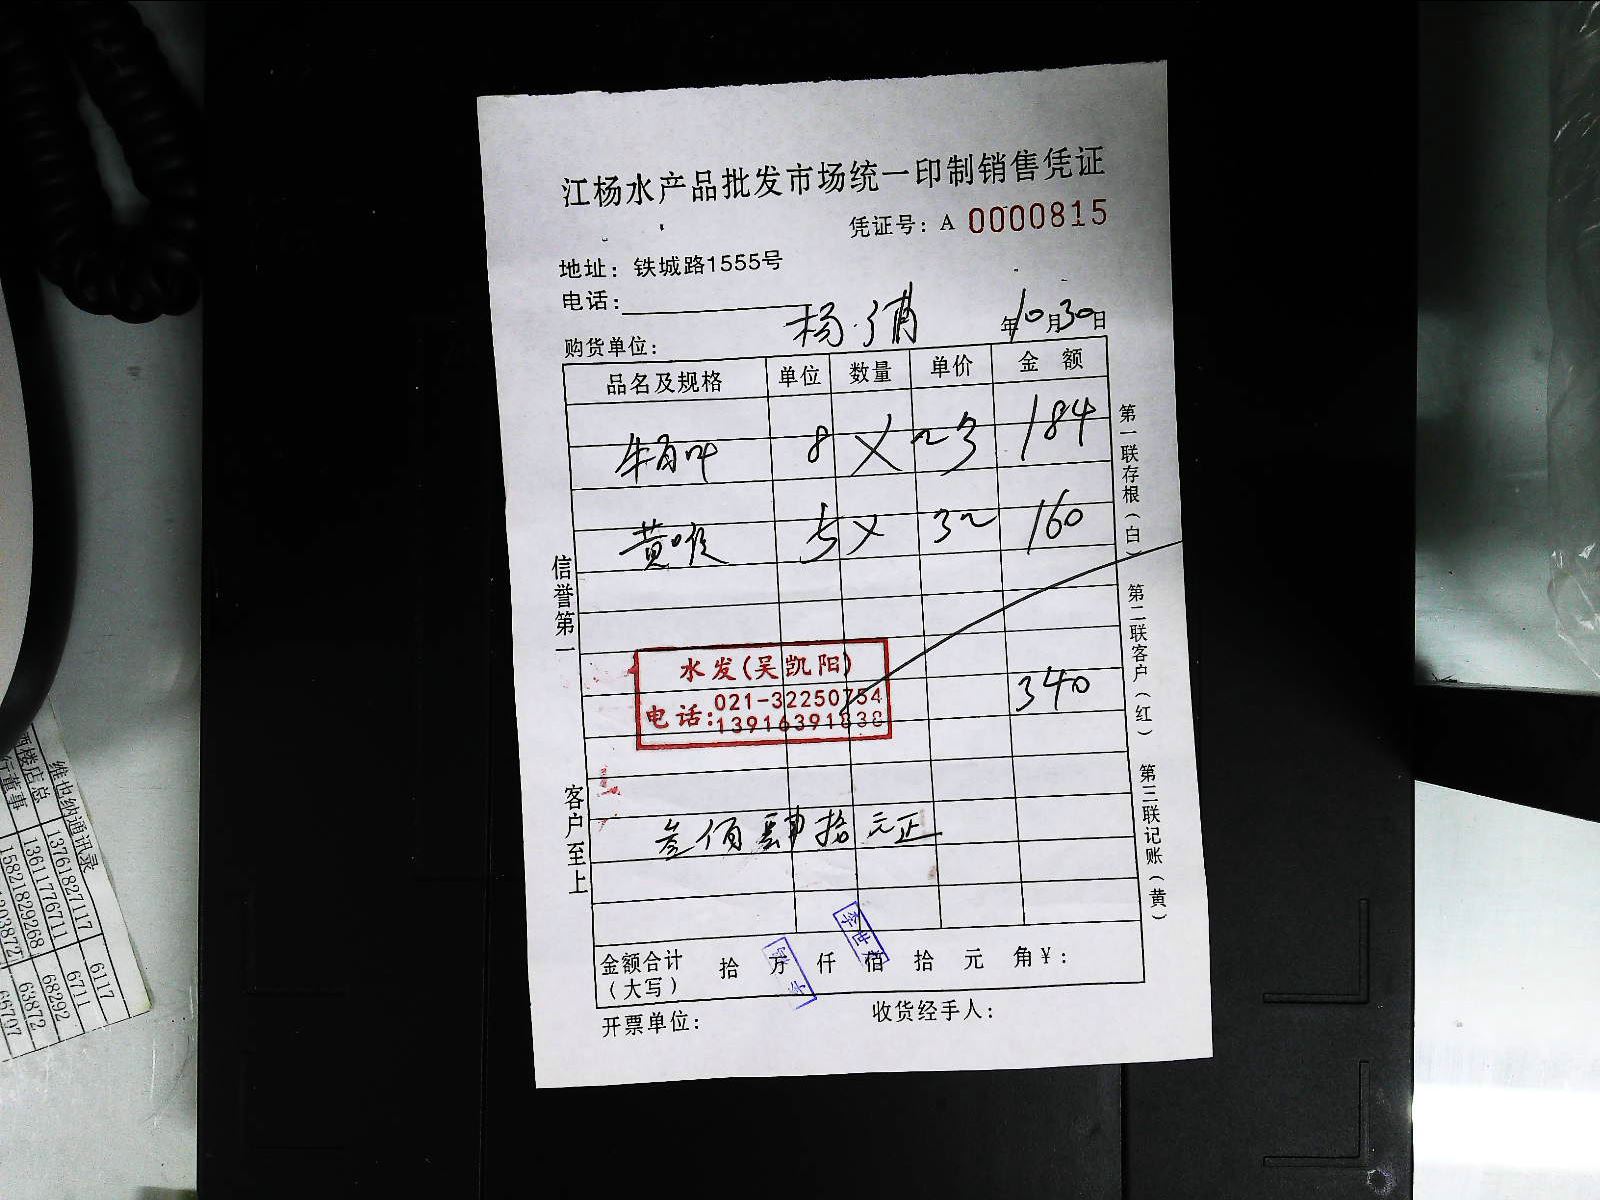 江杨水产品批发市场统一印制销售凭证
凭证号: A 0000815
地址: 铁城路1555号
电话:
购货单位: 杨
年10月30日
品名及规格 单位 数量 单价 金额
牛百叶 8 × 23 184
黄喉 5 × 32 160
340
水发(吴凯阳)
电话: 021-32250754
13916391838
叁佰肆拾元正
金额合计(大写) 拾 万 仟 佰 拾 元 角 ¥:
开票单位: 收货经手人:
信誉第一
客户至上
第一联存根(白) 第二联客户(红) 第三联记账(黄)
李世
维也纳通讯录
酒楼店总 13761827117 6117
行董事 13611776711 6711
15821829268 68292
203872 63872
66707